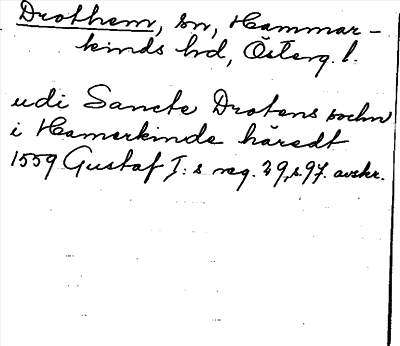 Drothem, sn, Hammar-
kinds hd, Österg. l.
udi Sancte Drotens sochn
i Hamerkinde häredt
1559 Gustaf I:s reg. 29, s 97. avskr.